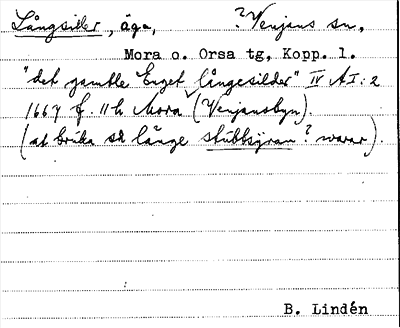 Långsilder, äga, ? Venjans sn,
Mora o. Orsa tg, Kopp. l.
"det gamble Enget långesilder" IV AI:2
1667 f. 11 h Mora (Venjansbyn).
(at bruka så länge stubbsyran? warar).
B. Lindén